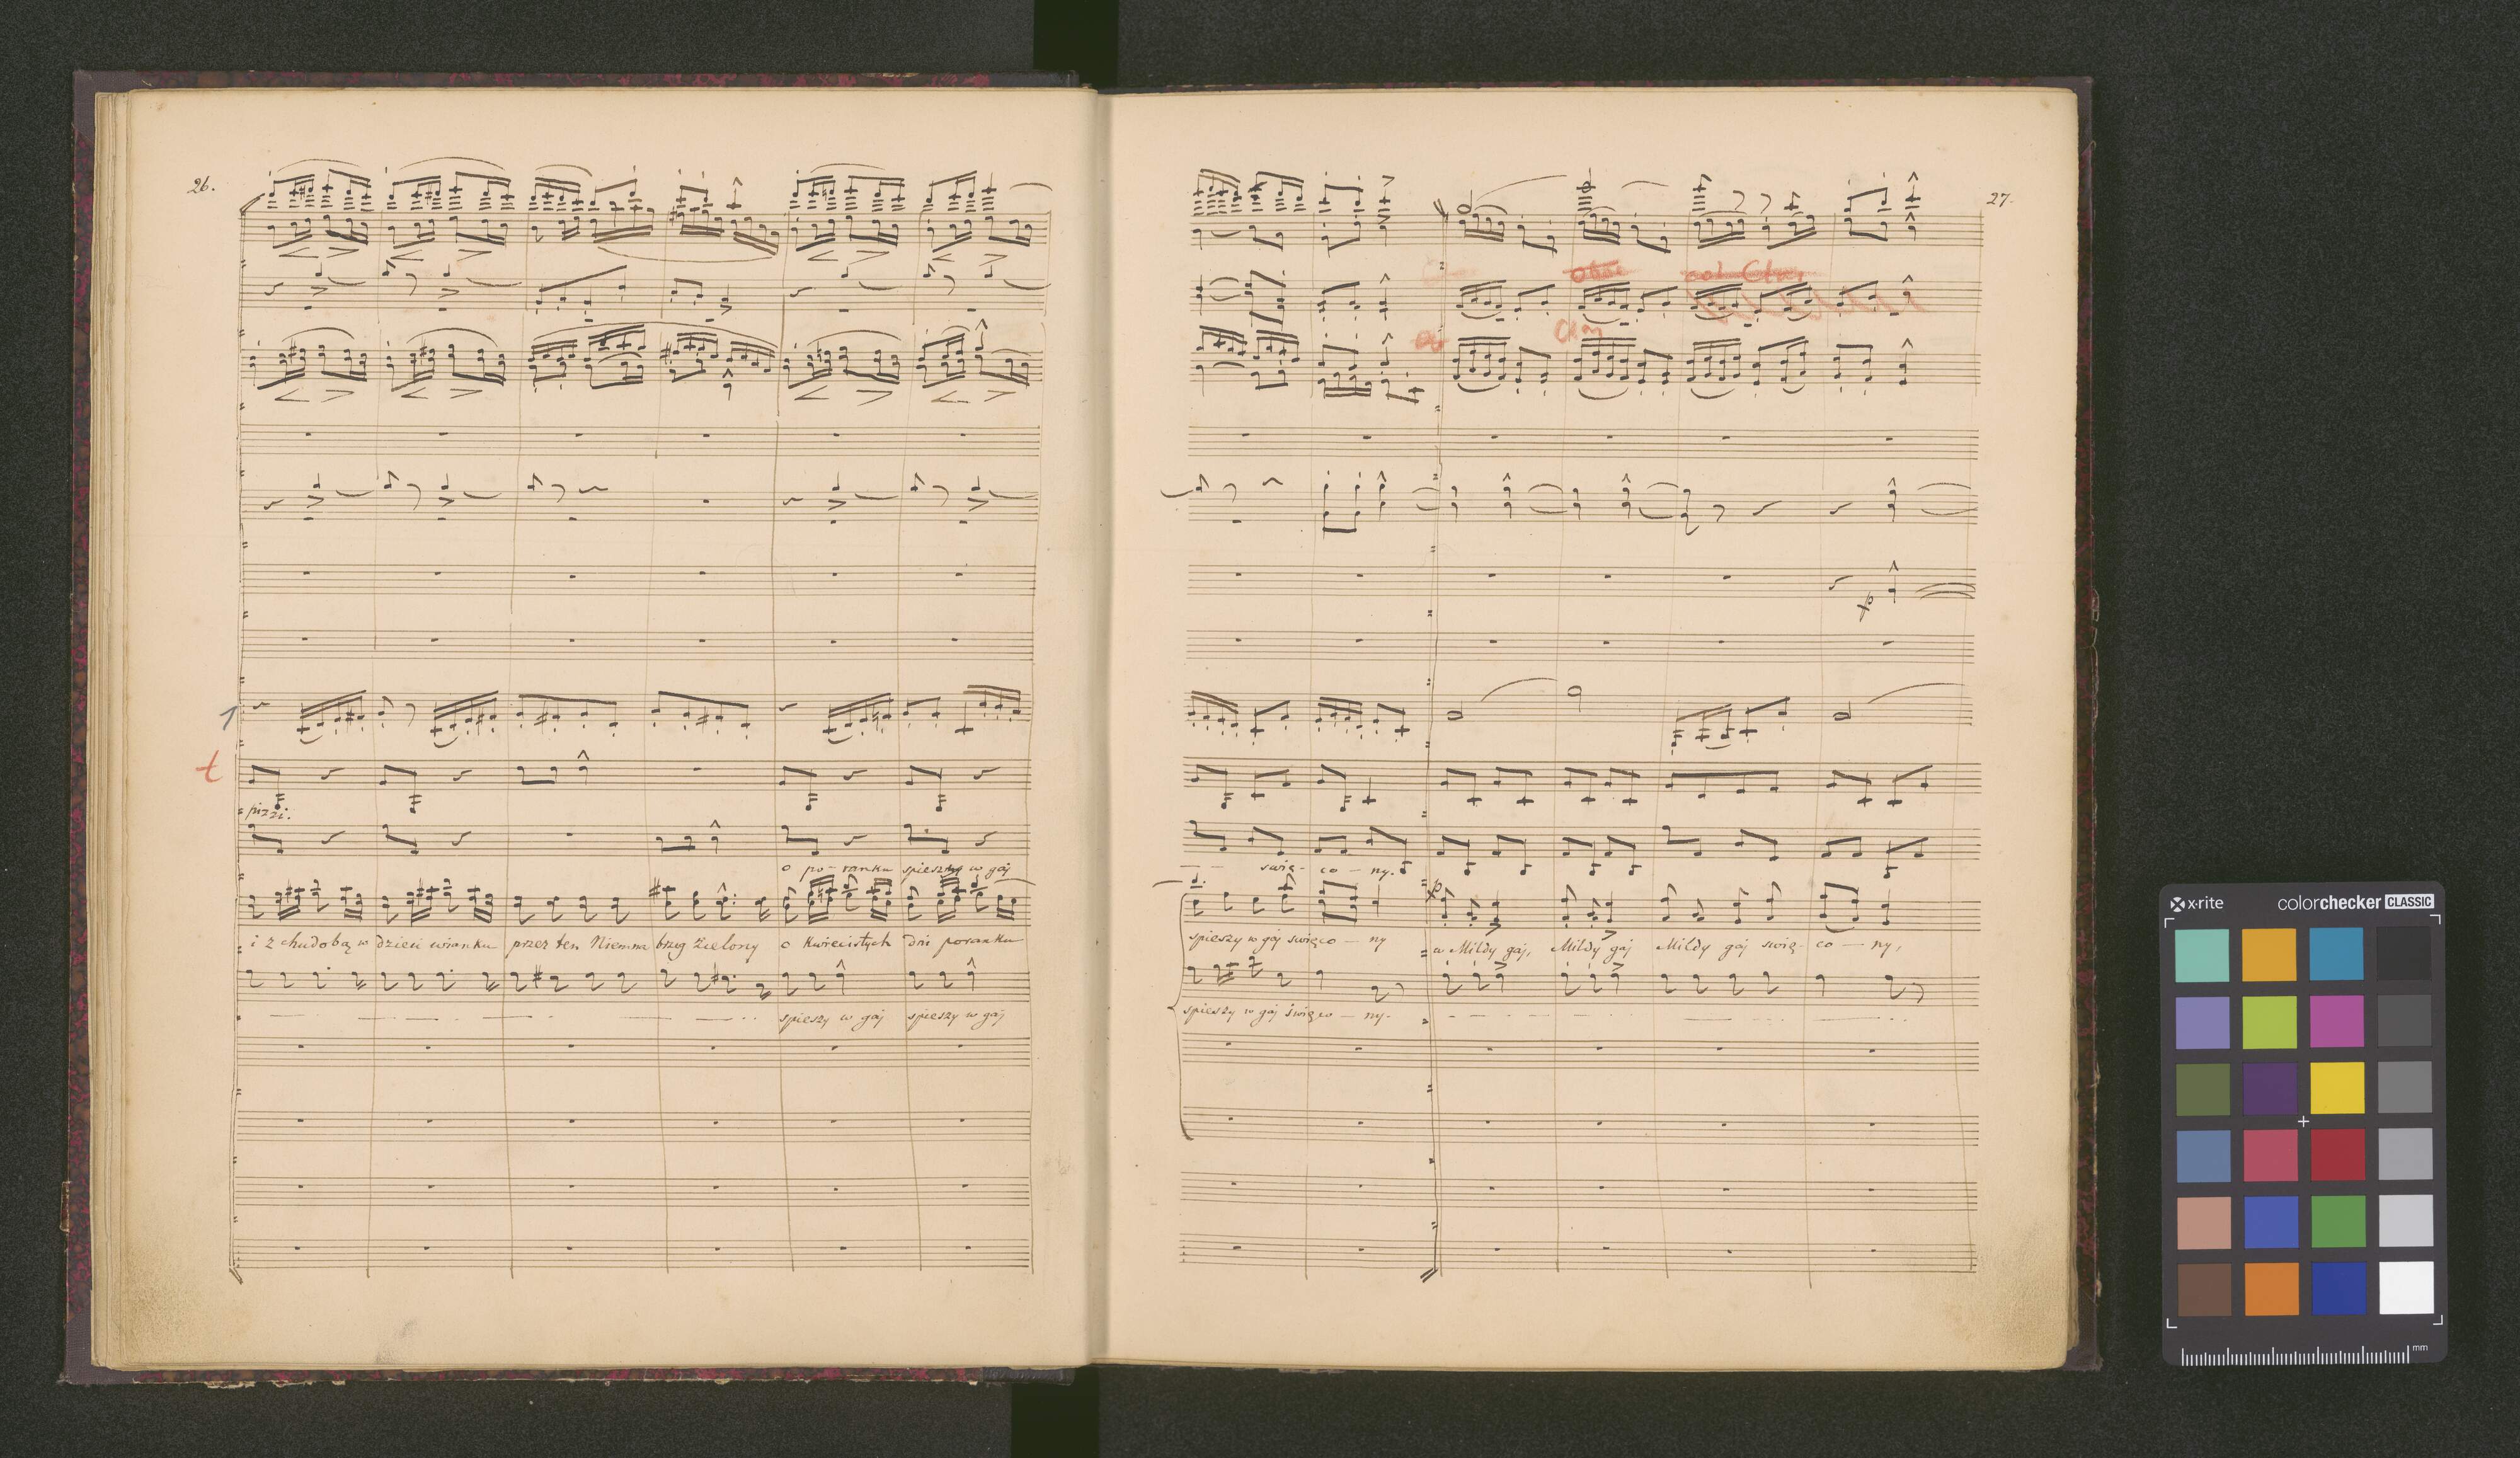 26.
pizzi.
o po - ranku spieszy w gaj
i z chudobą w dzień wianku przez ten Niemna brzeg zielony o kwiecistych dni poranku
spieszy w gaj spieszy w gaj
27.
Oboe col Clar.
Clar
p
świę - co - ny.
p
spieszy w gaj święco - ny w Mildy gaj, Mildy gaj Mildy gaj świę - co - ny,
spieszy w gaj święco - ny.
x-rite colorchecker CLASSIC
mm